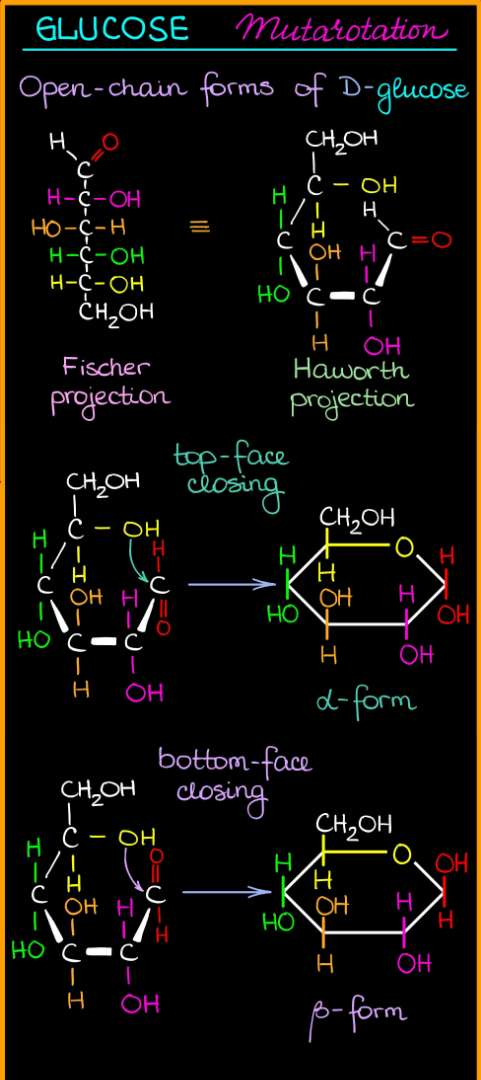 GLUCOSE Mutarotation
Open-chain forms of D-glucose
H O
C
H-C-OH
HO-C-H
H-C-OH
H-C-OH
CH₂OH
≡
CH₂OH
H C - OH
H H
C OH H C=O
HO C C
H OH
Fischer
projection
Haworth
projection
top-face
closing
CH₂OH
H C - OH
H H
C OH H C
HO C C O
H OH
CH₂OH
O
H H H
OH H
HO OH
H OH
α-form
bottom-face
closing
CH₂OH
H C - OH
H O
C OH H C
HO C C H
H OH
CH₂OH
H O OH
H
OH H
HO H
H OH
β-form